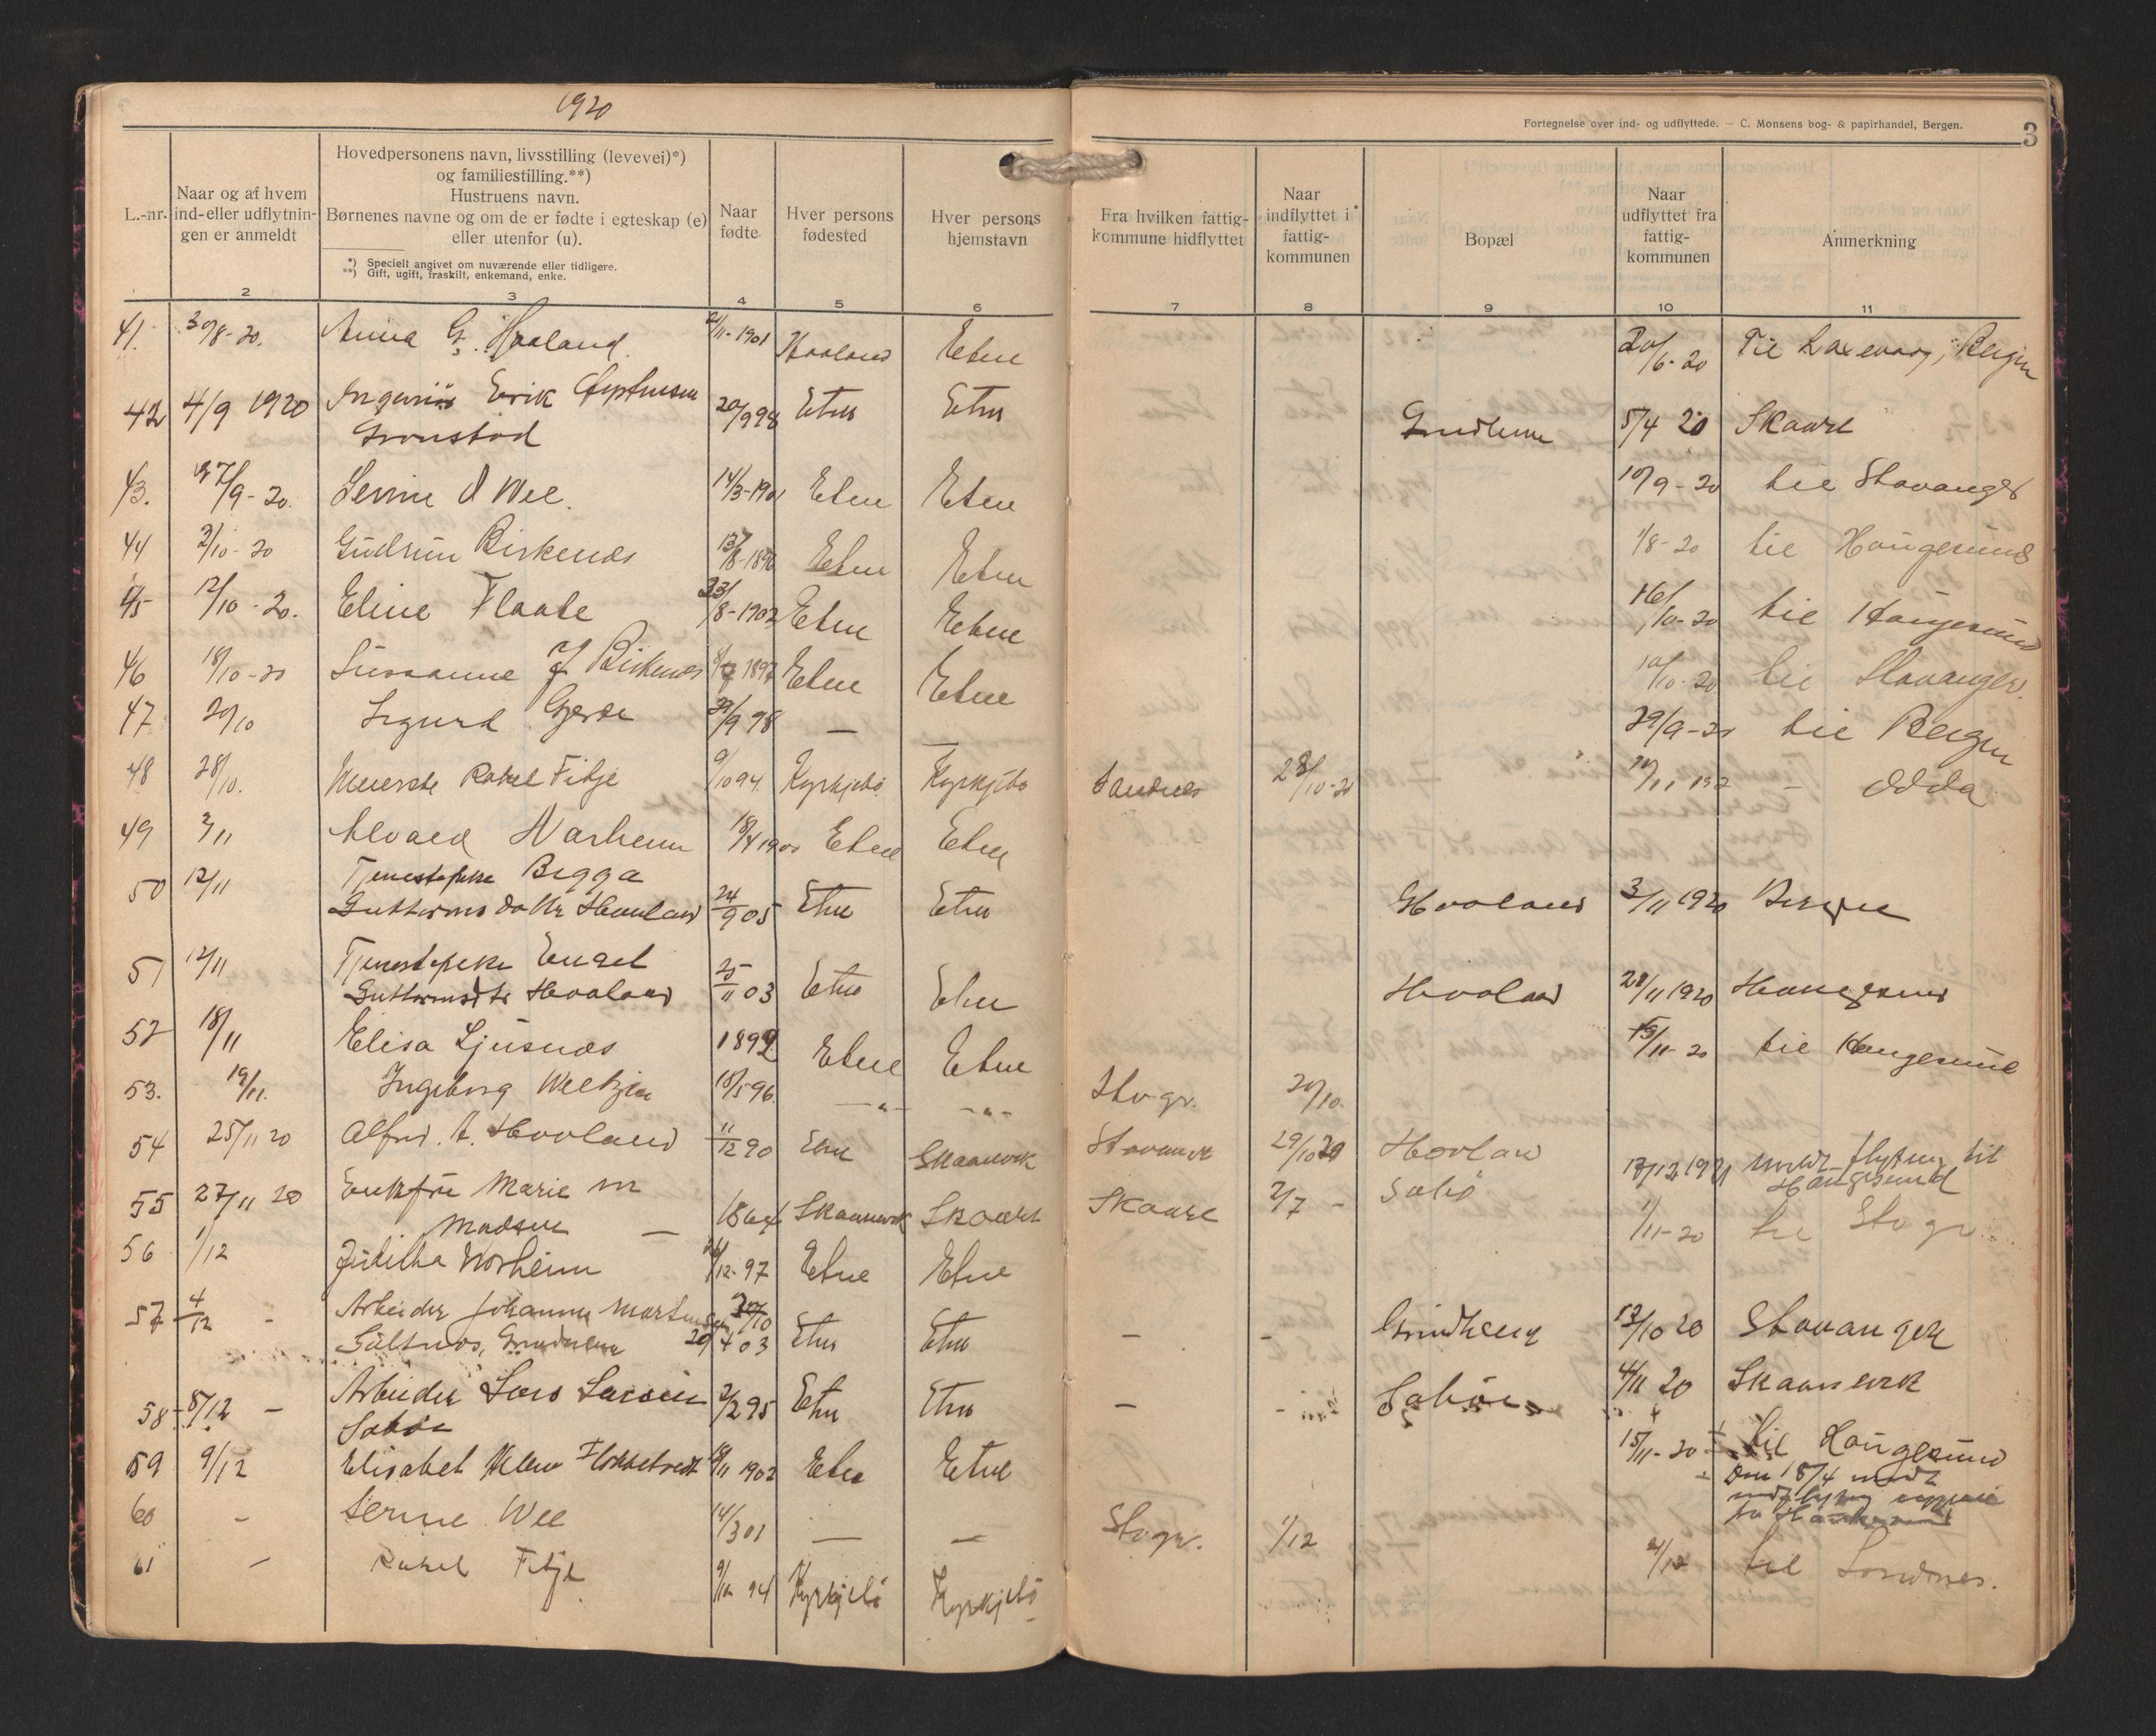 1920
Fortegnelse over ind- og udflyttede. — C. Monsens bog- & papirhandel, Bergen.
3
L.-nr.
Naar og af hvem
ind- eller udflytnin-
gen er anmeldt
Hovedpersonens navn, livsstilling (levevei)*)
og familiestilling.**)
Hustruens navn.
Børnenes navne og om de er fødte i egteskap (e)
eller utenfor (u).
*) Specielt angivet om nuværende eller tidligere.
**) Gift, ugift, fraskilt, enkemand, enke.
Naar
fødte
Hver persons
fødested
Hver persons
hjemstavn
Fra hvilken fattig-
kommune hidflyttet
Naar
indflyttet i
fattig-
kommunen
Bopæl
Naar
udflyttet fra
fattig-
kommunen
Anmerkning
2 3 4 5 6 7 8 9 10 11
41. 30/8-20. Anna G. Haaland 21/11-1901 Haaland Etne 20/6-20 Til Laxevaag, Bergen
42 4/9 1920 Erik
Grønstad 20/9 98 Etne Etne Grindheim 5/4 20 Skaare
43. 27/9-20. Serine Wee. 14/3-1901 Etne Etne 10/9-20 til Stavanger
44 2/10-20 Gudrun Birkenes Etne Etne 1/8-20 til Haugesund
45 12/10-20. Eline Flaate 23/8-1902 Etne Etne 16/10-20 til Haugesund
46 18/10-20 Sussanne J Birkenes Etne Etne 10/10-20 til Stavanger.
47 20/10 Sigurd Gjerde 29/9 98 — — 29/9-20 til Bergen
48 28/10. Meierske Rakel Fitje 9/10 94. Kyrkjebø Kyrkjebø Sandnes 28/10-20 — Odda
49 2/11 Norheim 18/4 1900 Etne Etne
50 12/11 Tjenestepike Begga
Guttormsdatter Haaland 24/9 05 Etne Etne Haaland 3/11 1920 Bergen
51 12/11 Tjenestepike Engel
Guttormsdtr Haaland 25/11 03 Etne Etne Haaland 28/11 1920 Haugesund
52 18/11 Elisa Ljusnes 1892 Etne Etne 15/11-20 til Haugesund
53. 19/11. Ingeborg 18/5 96. —"— —"— Stvgr. 20/10.
54 25/11 20 Alfred A. Haaland 11/12 90 Etne Skaanevik Stavanger 29/10 20 Haaland 17/12 1921 meldt flytning til
Haugesund
55 27/11 20 Enkefru Marie m
Madsen — 1864 Skaanevik Skaare Skaare 2/7 - Sæbø
56 1/12 Julitha Norheim 12-97 Etne Etne 1/11-20 til Stvgr
57 4/12 - Arbeider Johannes Martinsen
Saltnes, Grindheim 20/4 03 Etne Etne — - Grindheim 12/10 20 Stavanger
58 8/12 — Arbeider Lars Larsen
Sæbøe 2/2 95 Etne Etne — - Sæbøe 4/11 20 Skaanevik
59 9/12 Elisabet Helene 18/11 1902 Etne Etne 15/11-20 til Haugesund
Den 18/4 meldt
60 - Serine Wee 14/3 01 — — Stvgr. 1/12
61 - Rakel Fitje 9/10 94 Kyrkjebø Kyrkjebø 2/12 til Sandnes.